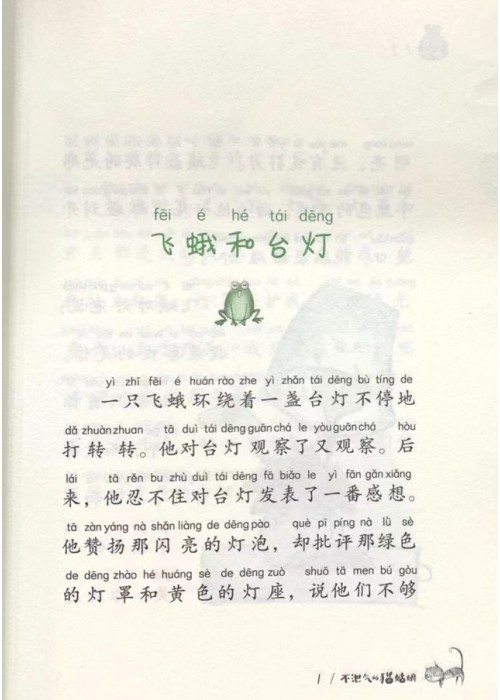 fēi é hé tái dēng
飞蛾和台灯
yì zhī fēi é huán rào zhe yì zhǎn tái dēng bù tíng de
一只飞蛾环绕着一盏台灯不停地
dǎ zhuàn zhuan tā duì tái dēng guān chá le yòu guān chá hòu
打转转。他对台灯观察了又观察。后
lái tā rěn bu zhù duì tái dēng fā biǎo le yì fān gǎn xiǎng
来，他忍不住对台灯发表了一番感想。
tā zàn yáng nà shǎn liàng de dēng pào què pī píng nà lǜ sè
他赞扬那闪亮的灯泡，却批评那绿色
de dēng zhào hé huáng sè de dēng zuò shuō tā men bú gòu
的灯罩和黄色的灯座，说他们不够
1 / 不泄气的猫姑娘